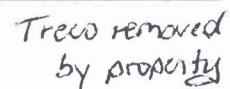 Treco removed
by property